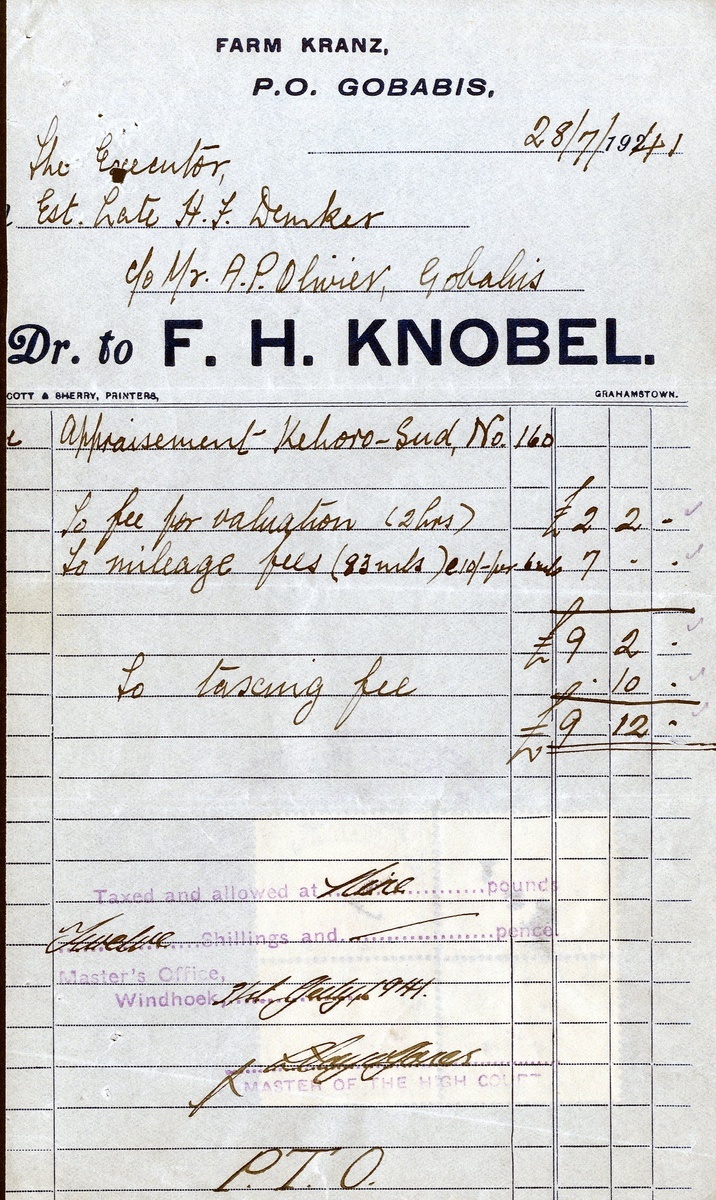 FARM KRANZ,
P.O. GOBABIS,
28/7/1941
The Executor,
Est. Late H. F. Demker
c/o Mr. A.P. Olivier, Gobabis
Dr. to F. H. KNOBEL.
COTT & SHERRY, PRINTERS, GRAHAMSTOWN.
Appraisement Kehoro-Sud, No. 160
To fee for valuation (2hrs) £2 2 -
To mileage fees (83 mls) @ 10/- per 6 mls 7 - -
£9 2 -
To taxing fee - 10 -
£9 12 -
Taxed and allowed at Nine pounds
Twelve Shillings and — pence.
Master's Office,
Windhoek, 31st July, 1941.
MASTER OF THE HIGH COURT
P.T.O.